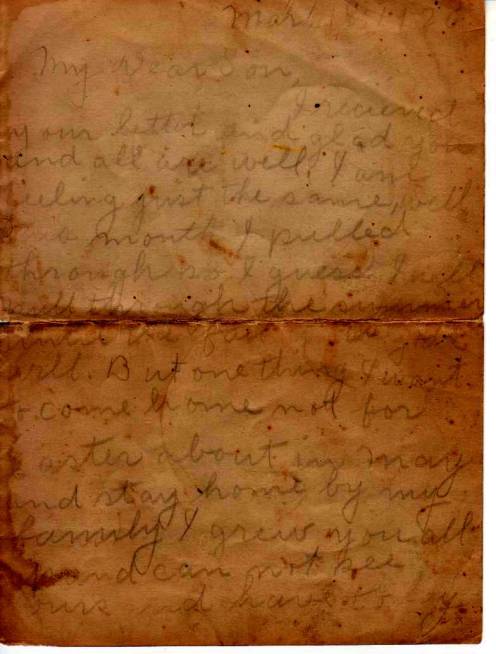 My Dear Son,
I recieved
your letter and glad you
and all are well. I am
feeling just the same, well
month I pulled
through so I guess I will
pull through the summer
until the fall
well. But one thing I want
to come home not for
Easter about in May
and stay home by my
family I grew you all
up and can not see
yours and have to